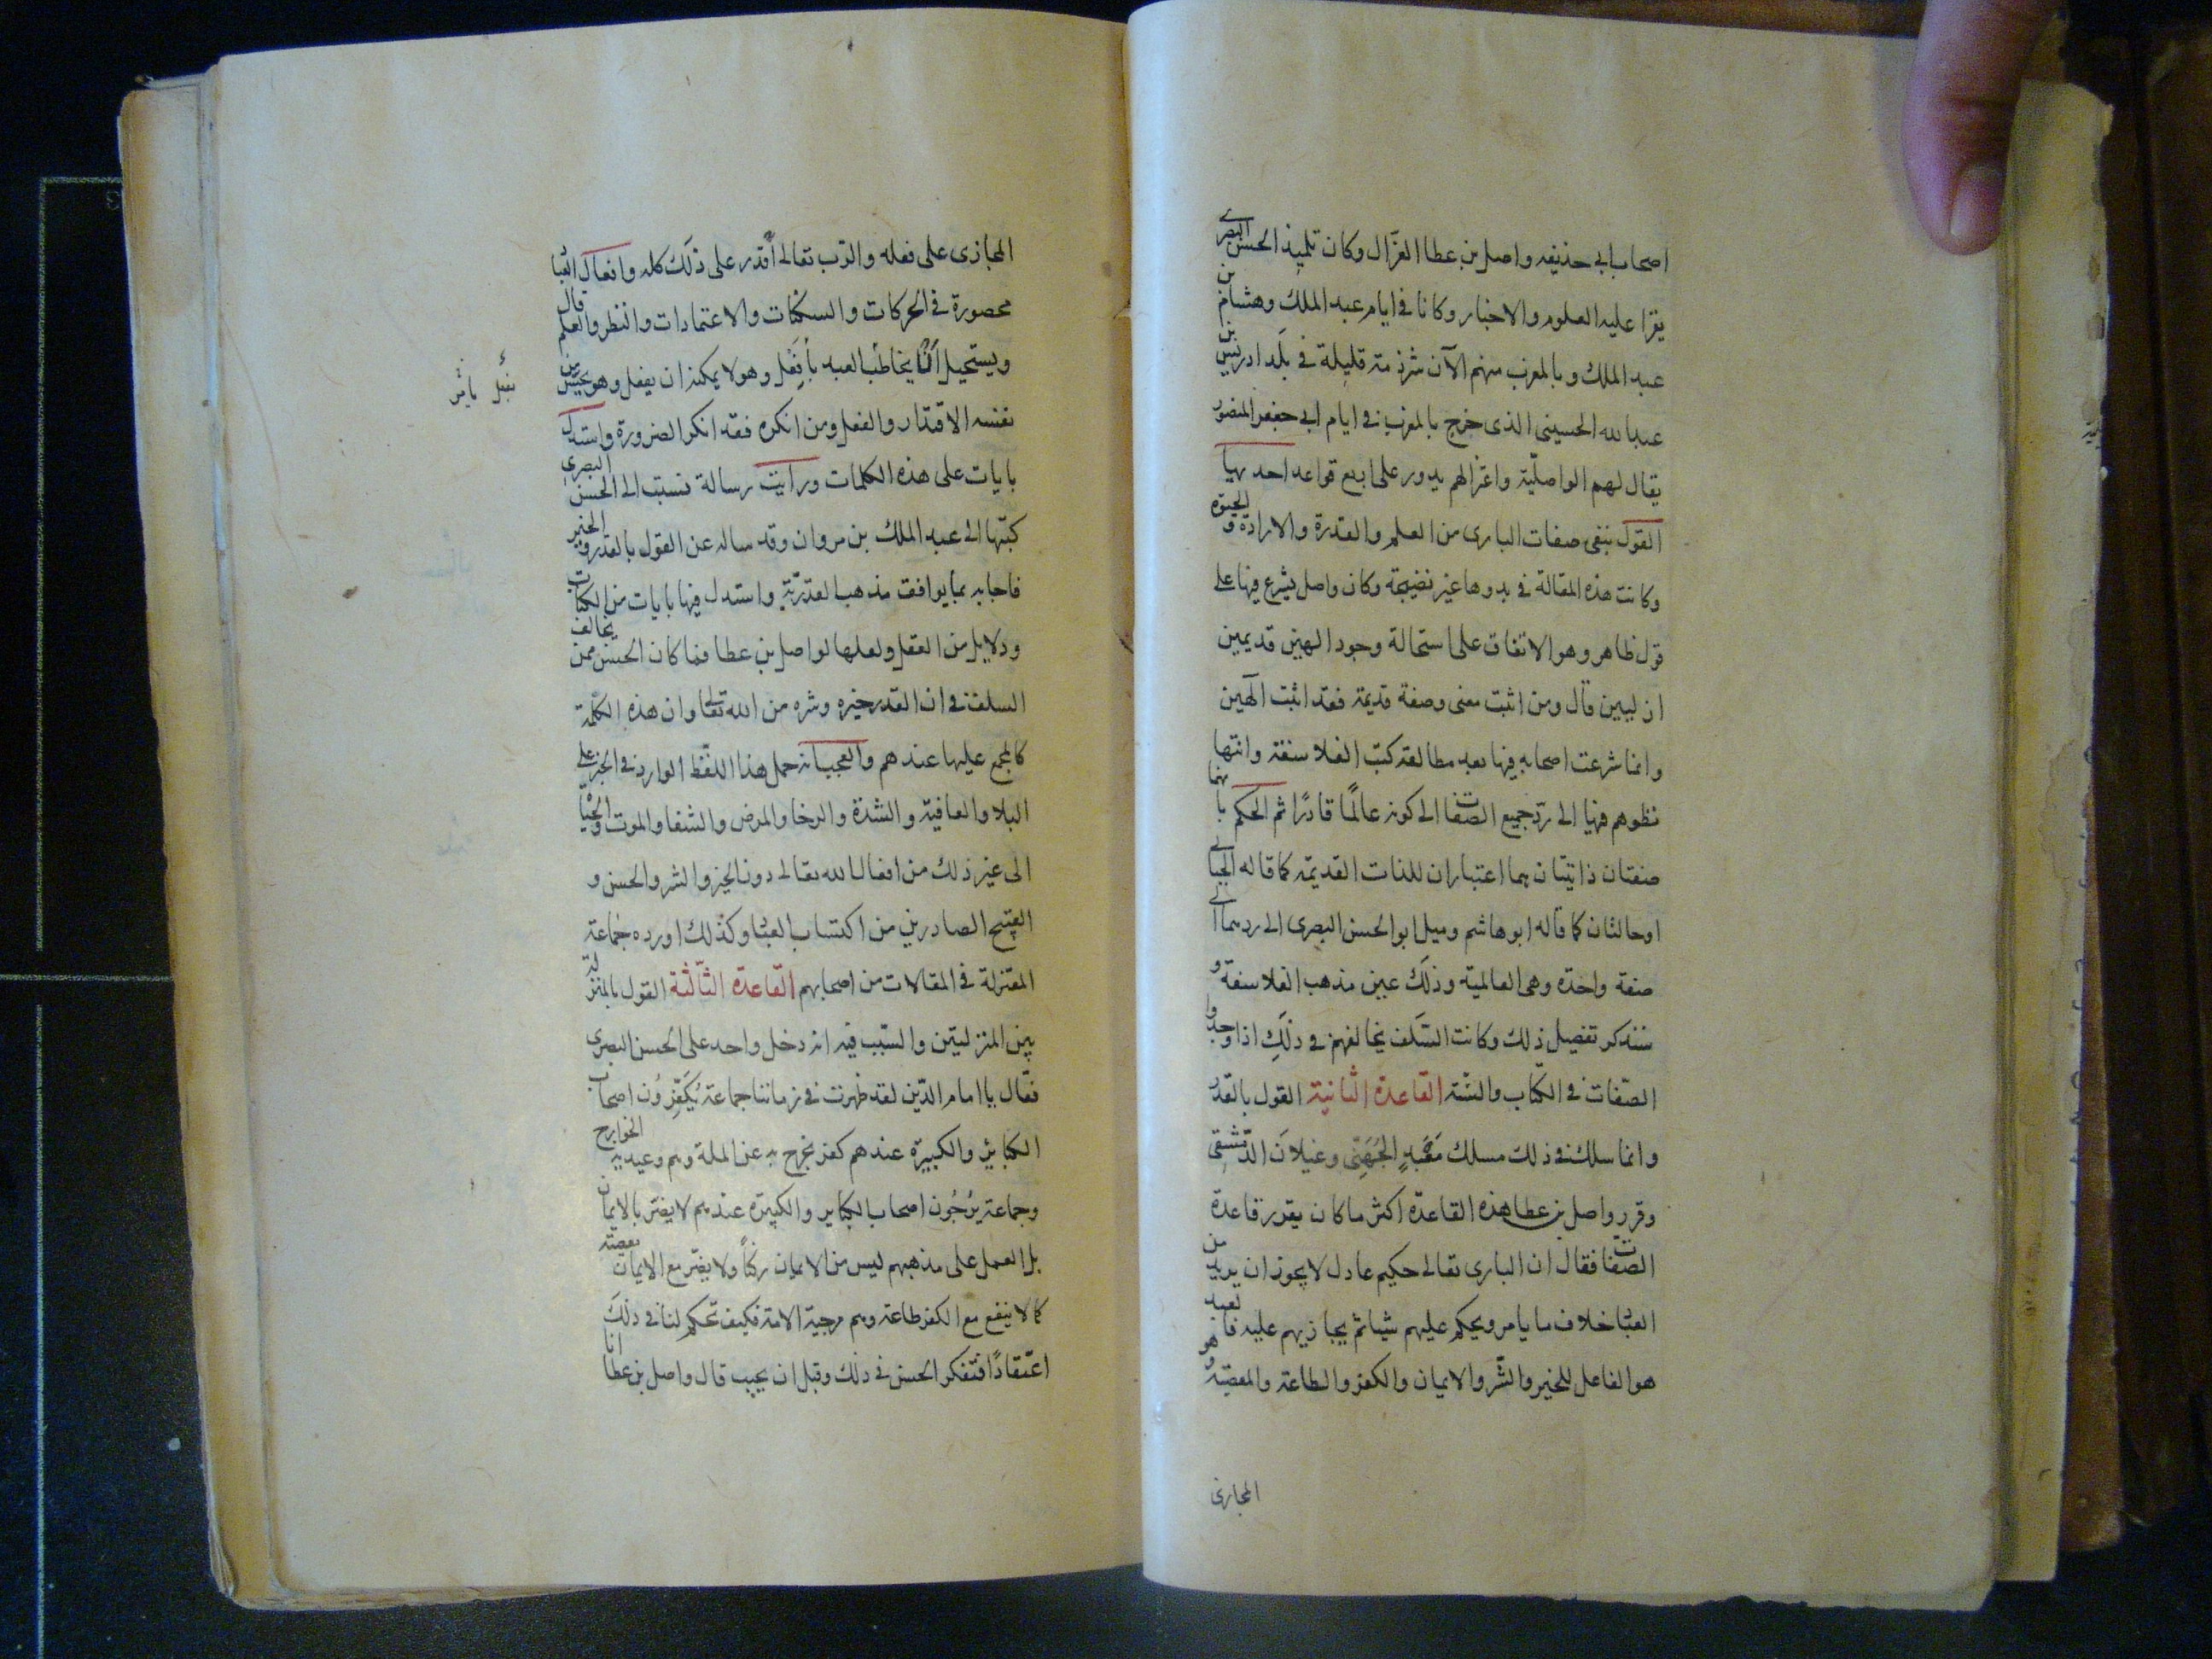 اصحاب ابى حذيفه واصل بن عطا الغزّال وكان تلميذ الحسن البصرى
يقرا عليه العلوم والاخبار وكانا فى ايام عبد الملك وهشام بن
عبد الملك وبالمغرب منهم الآن شرذمة قليلة فى بلد ادريس بن
عبد الله الحسينى الذى خرج بالمغرب فى ايام ابى جعفر المنصور
يقال لهم الواصليّة واعتزالهم يدور على اربع قواعد احديها
القول بنفى صفات البارى من العلم والقدرة والارادة والحيوة
وكانت هذه المقالة فى بدوها غير نضيجة وكان واصل يشرع فيها على
قول ظاهر وهو الاتفاق على استحالة وجود الهين قديمين
ازليين قال ومن اثبت معنى وصفة قديمة فقد اثبت آلهين
وانما شرعت اصحابه فيها بعد مطالعة كتب الفلاسفة وانتها
نظرهم فيها الى ردّ جميع الصفات الى كونه عالمًا قادرًا ثم الحكم بانهما
صفتان ذاتيتان هما اعتباران للذات القديمة كما قاله الجبائى
او حالتان كما قاله ابو هاشم وميل ابو الحسن البصرى الى ردهما الى
صفة واحدة وهى العالمية وذلك عين مذهب الفلاسفة و
سنذكر تفصيل ذلك وكانت السّلف يخالفهم فى ذلك اذا وجدوا
الصّفات فى الكتاب والسّنّة القاعدة الثانية القول بالقدر
وانما سلك فى ذلك مسلك مَعْبدٍ الجُهَنِى وغيلانَ الدّمشقى
وقرر واصل بن عطا هذه القاعدة اكثر ما كان يقرر قاعدة
الصفات فقال ان البارى تعالى حكيم عادل لا يجوز ان يريد من
العباد خلاف ما يامر ويحكم عليهم شيئا ثم يجازيهم عليه فالعبد
هو الفاعل للخير والشّر والايمان والكفر والطاعة والمعصية وهو
المجازى
المجازى على فعله والرّب تعالى أقدر على ذلك كله وافعال العباد
محصورة فى الحركات والسكنات والاعتمادات والنظر والعلم قال
ويستحيل أن يخاطب العبد بأفعل وهو لا يمكنه ان يفعل وهو يحسّ من
نفسه الاقتدار والفعل ومن انكره فقد انكر الضرورة واستدل
بايات على هذه الكلمات ورايت رسالة نسبت الى الحسن البصرى
كتبها الى عبد الملك بن مروان وقد ساله عن القول بالقدر والخير
فاجابه بما يوافق مذهب القدريّة واستدل فيها بايات من الكتاب
ودلايل من العقل ولعلها لواصل بن عطا فما كان الحسن ممن يخالف
السلف فى ان القدر خيره وشره من الله تعالى وان هذه الكلمة
كالمجمع عليها عندهم والعجب انه حمل هذا اللفظ الوارد فى الخبر على
البلا والعافية والشدة والرخا والمرض والشفا والموت والحيا
الى غير ذلك من افعال الله تعالى دون الخير والشر والحسن و
القبيح الصادرين من اكتساب العباد وكذلك اورده جماعة
المعتزلة فى المقالات من اصحابهم القاعدة الثّالثة القول بالمنزلة
بين المنزلتين والسّبب فيه انه دخل واحد على الحسن البصرى
فقال يا امام الدّين لقد ظهرت فى زماننا جماعة يُكَفِّرُون اصحاب
الكباير والكبيرة عندهم كفر يخرج به عن الملة وهم وعيدية الخوارج
وجماعة يُرْجُون اصحاب الكباير والكبيرة عندهم لا يضر بالايمان
بل العمل على مذهبهم ليس من الايمان ركنًا ولا يضر مع الايمان معصية
كما لا ينفع مع الكفر طاعة وهم مرجية الامة فكيف تحكم لنا فى ذلك
اعتقادًا فتفكر الحسن فى ذلك وقبل ان يجيب قال واصل بن عطا انا